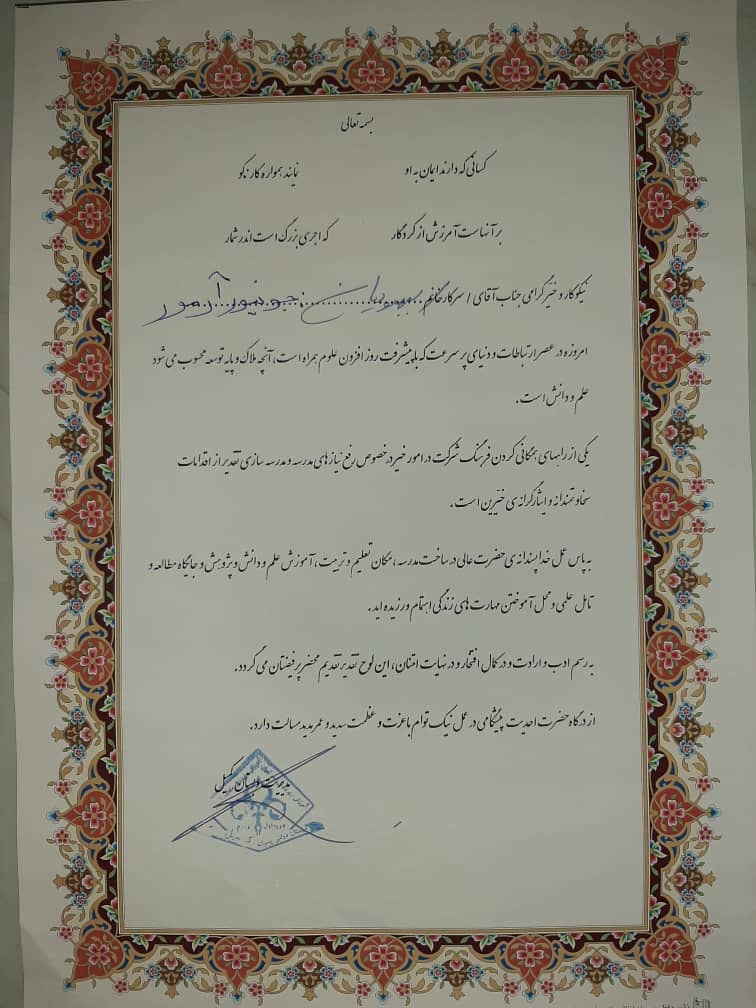 بسمه تعالی
کسانی که دارند ایمان به او نمایند همواره کار نکو
بر آنهاست آمرزش از کردگار که اجری بزرگ است اندر شمار
نیکوکار و خیر گرامی جناب آقای / سرکار خانم جونیور آرمور
امروزه در عصر ارتباطات و دنیای پر سرعت که با پیشرفت روز افزون علوم همراه است، آنچه ملاک و پایه توسعه محسوب می شود
علم و دانش است.
یکی از راههای همگانی کردن فرهنگ شرکت در امور خیر در خصوص رفع نیازهای مدرسه و مدرسه سازی تقدیر از اقدامات
سخاوتمندانه و ایثارگرانه ی خیرین است.
به پاس عمل خداپسندانه ی حضرت عالی در ساخت مدرسه، مکان تعلیم و تربیت، آموزش علم و دانش و پژوهش و جایگاه مطالعه و
تامل علمی و محل آموختن مهارت های زندگی اهتمام ورزیده اید.
به رسم ادب و ارادت و در کمال افتخار و در نهایت امتنان، این لوح تقدیر تقدیم محضر پر فیضتان می گردد.
از درگاه حضرت احدیت پیشگامی در عمل نیک توام با عزت و عظمت سدید و عمر مدید مسالت دارد.
مدیریت دبستان کمیل